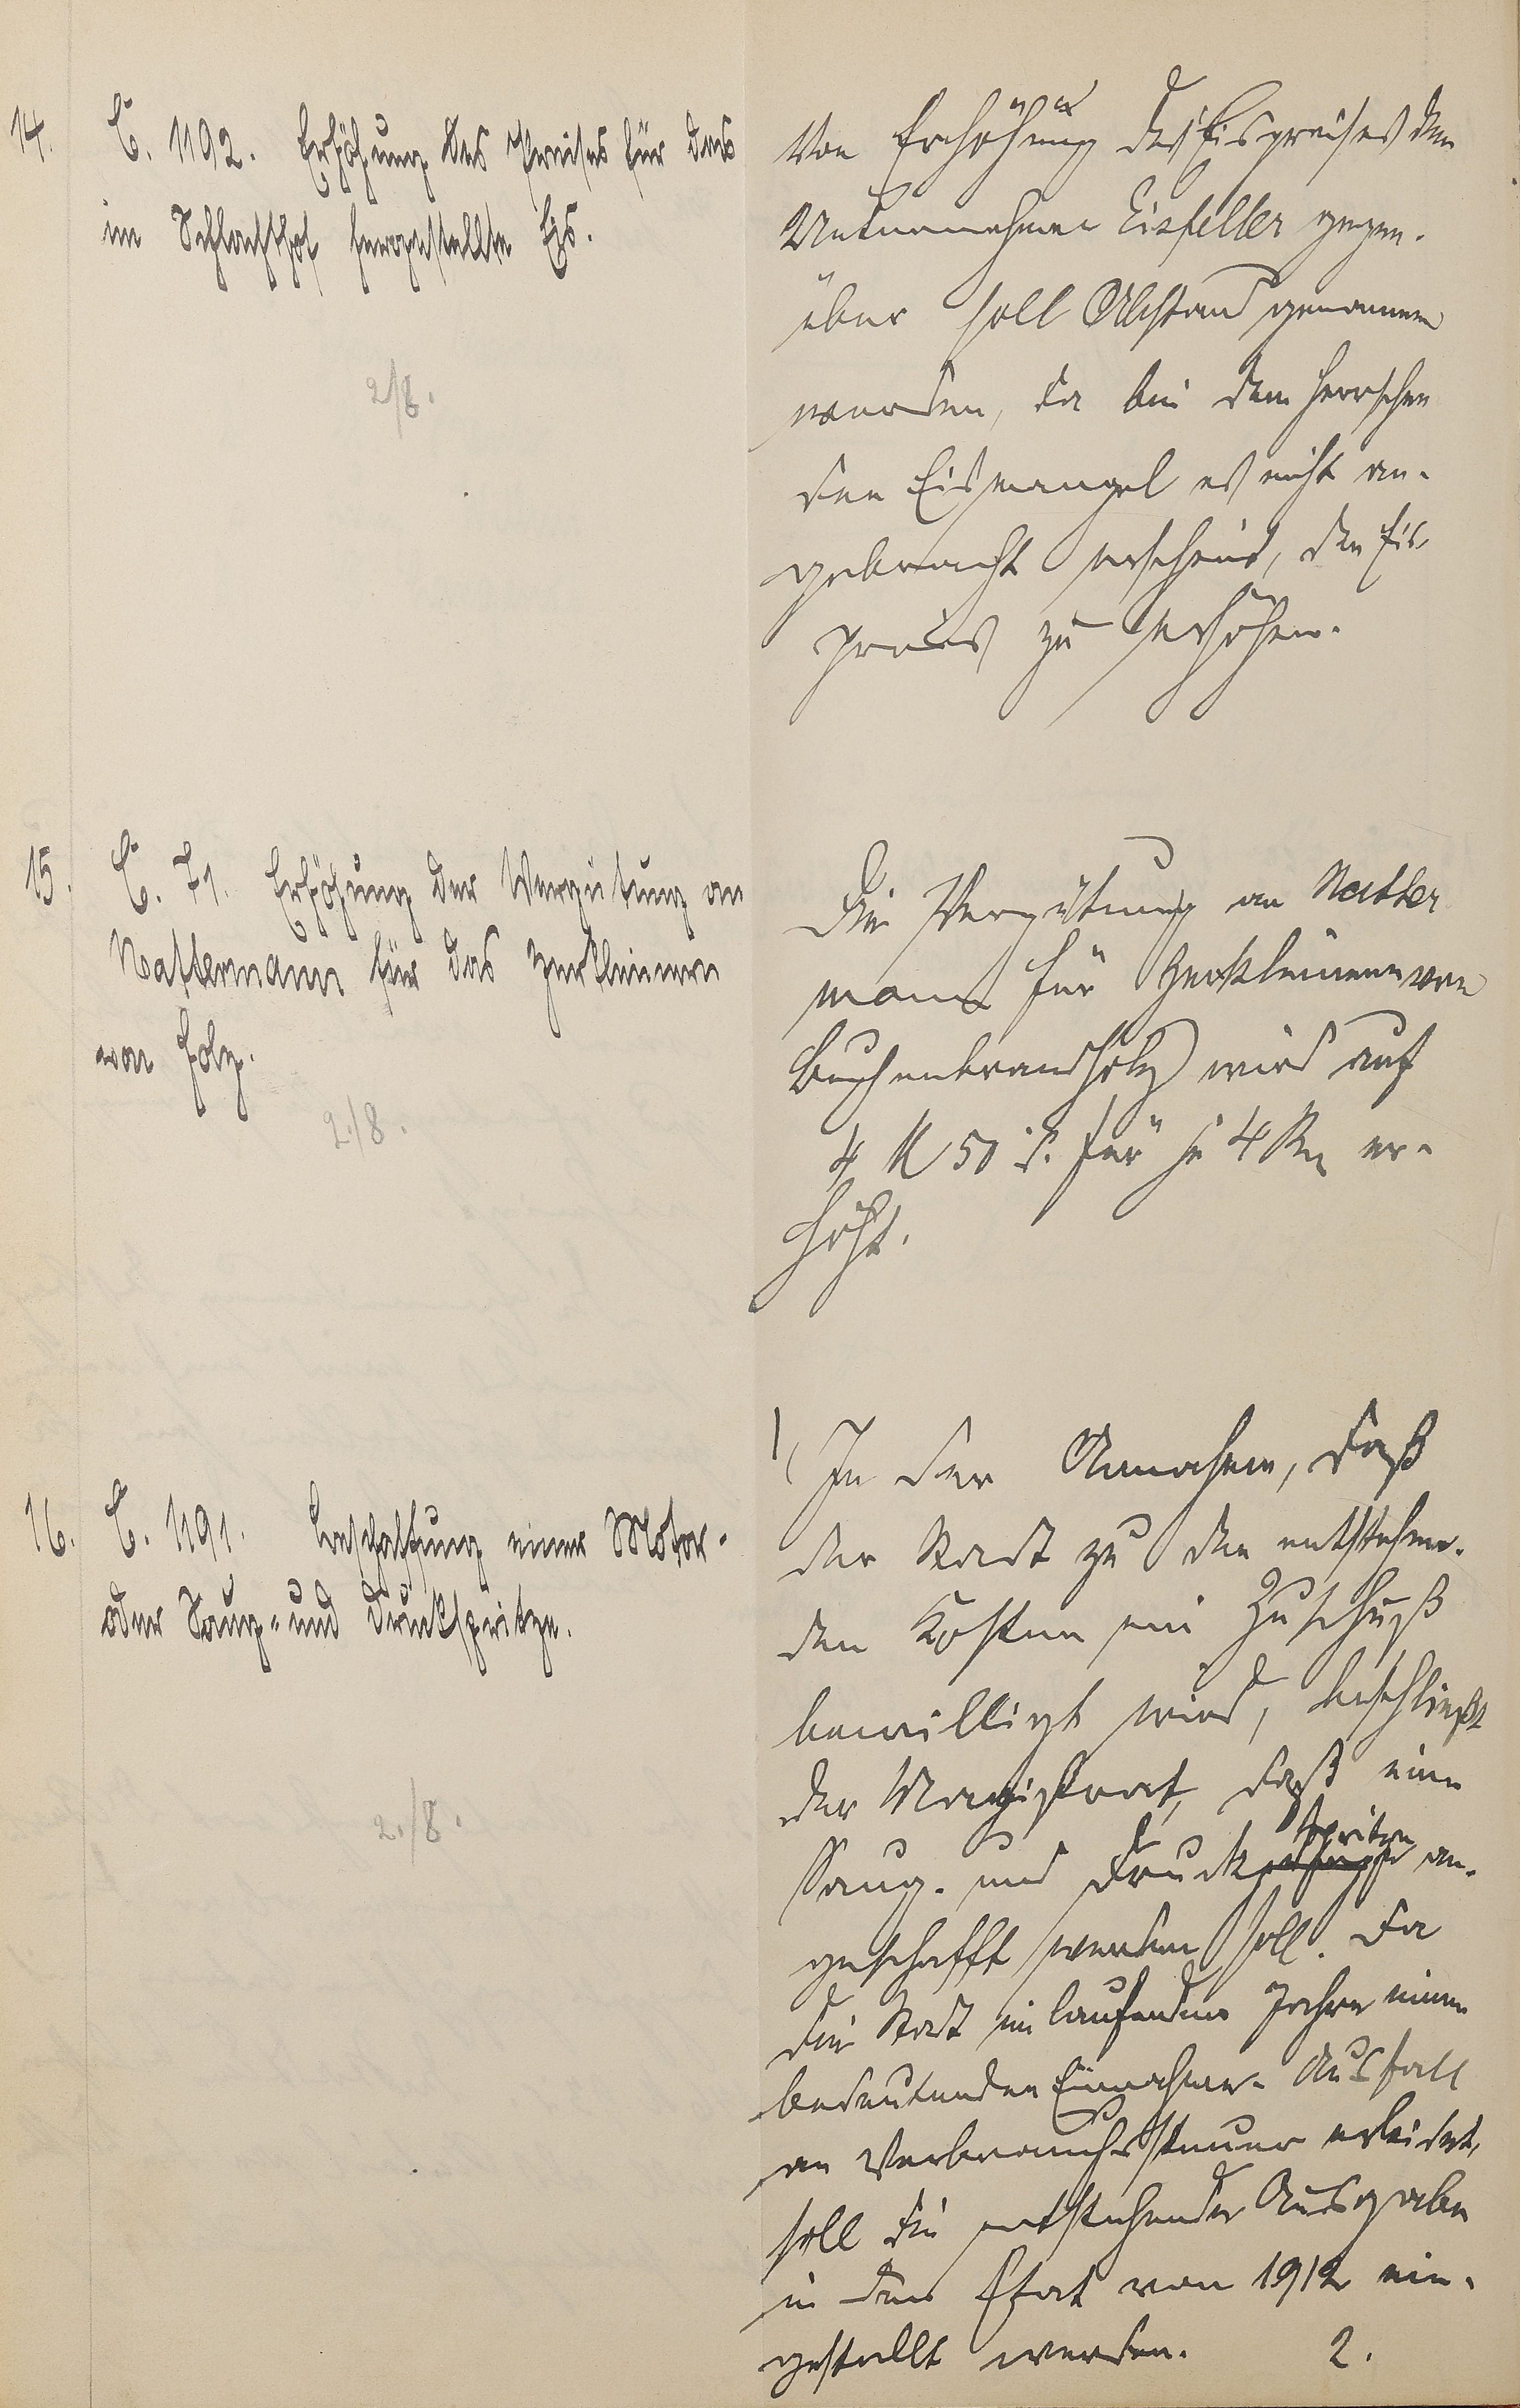 14. C. 1192. Erhöhung des Preises für das
im Schlachthof hergestellte Eis.
2/8.
Von Erhöhung des Eispreises dem
Unternehmer Eisfeller gegen-
über soll Abstand genommen
werden, da bei dem herrschen
den Eismangel es nicht an-
gebracht erscheint, den Eis-
preis zu erhöhen.
15. C. 71. Erhöhung der Vergütung an
Nattermann für das Zerkleinern
von Holz.
2./8.
Die Vergütung an Natter
mann für Zerkleinern von
Buchenbrandholz wird auf
4 M 50 d. für je 4 Rm er-
höht.
16. C. 1191. Beschaffung einer Motor-
oder Saug- und Druckspritze.
2./8.
1, In der Annahme, daß
der Stadt zu den entstehen-
den Kosten ein Zuschuß
bewilligt wird, beschließt
der Magistrat, daß eine
Saug- und Druckspritze an-
geschafft werden soll. Da
die Stadt im laufenden Jahre einen
bedeutenden Einnahme-Ausfall
an Verbrauchssteuer erleidet,
soll die entstehende Ausgabe
in den Etat von 1912 ein-
gestellt werden. 2.